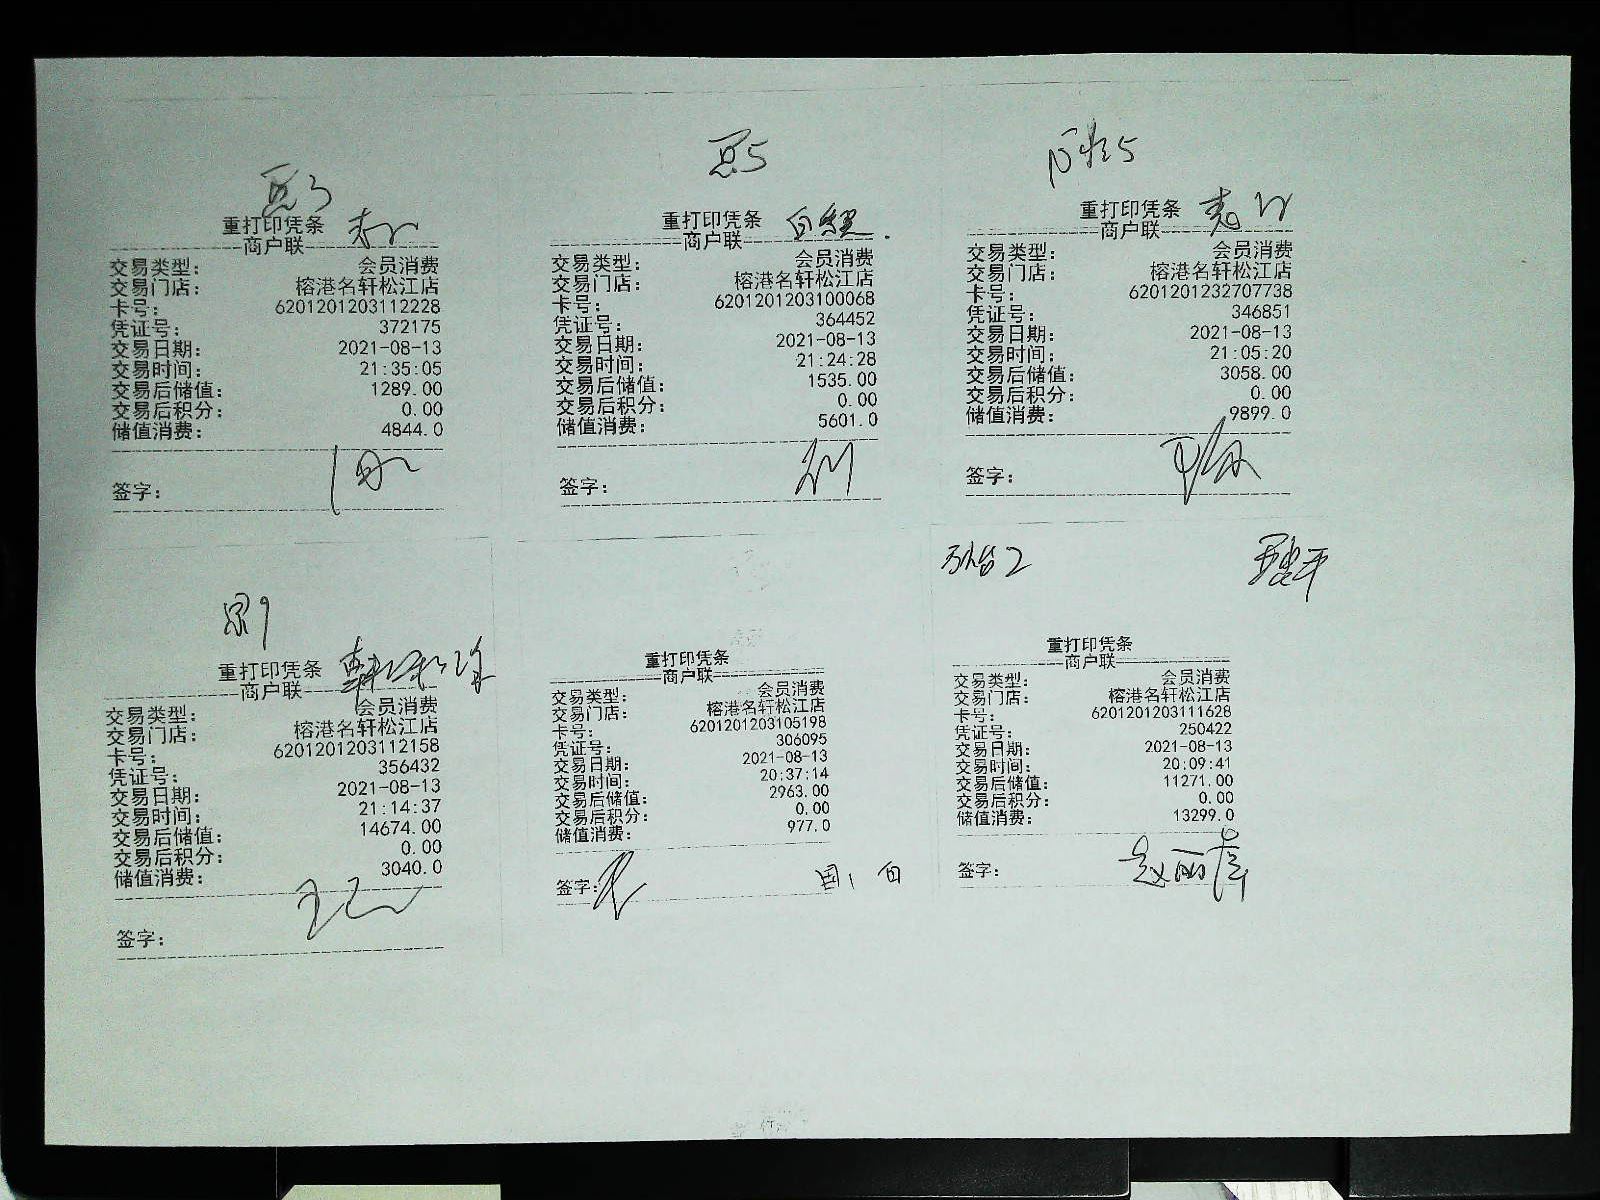 重打印凭条
商户联
交易类型: 会员消费
交易门店: 榕港名轩松江店
卡号: 6201201203112228
凭证号: 372175
交易日期: 2021-08-13
交易时间: 21:35:05
交易后储值: 1289.00
交易后积分: 0.00
储值消费: 4844.0
签字:
重打印凭条
商户联
交易类型: 会员消费
交易门店: 榕港名轩松江店
卡号: 6201201203100068
凭证号: 364452
交易日期: 2021-08-13
交易时间: 21:24:28
交易后储值: 1535.00
交易后积分: 0.00
储值消费: 5601.0
签字:
重打印凭条
商户联
交易类型: 会员消费
交易门店: 榕港名轩松江店
卡号: 6201201232707738
凭证号: 346851
交易日期: 2021-08-13
交易时间: 21:05:20
交易后储值: 3058.00
交易后积分: 0.00
储值消费: 9899.0
签字:
重打印凭条
商户联
交易类型: 会员消费
交易门店: 榕港名轩松江店
卡号: 6201201203112158
凭证号: 356432
交易日期: 2021-08-13
交易时间: 21:14:37
交易后储值: 14674.00
交易后积分: 0.00
储值消费: 3040.0
签字:
重打印凭条
商户联
交易类型: 会员消费
交易门店: 榕港名轩松江店
卡号: 6201201203105198
凭证号: 306095
交易日期: 2021-08-13
交易时间: 20:37:14
交易后储值: 2963.00
交易后积分: 0.00
储值消费: 977.0
签字:
重打印凭条
商户联
交易类型: 会员消费
交易门店: 榕港名轩松江店
卡号: 6201201203111628
凭证号: 250422
交易日期: 2021-08-13
交易时间: 20:09:41
交易后储值: 11271.00
交易后积分: 0.00
储值消费: 13299.0
签字: